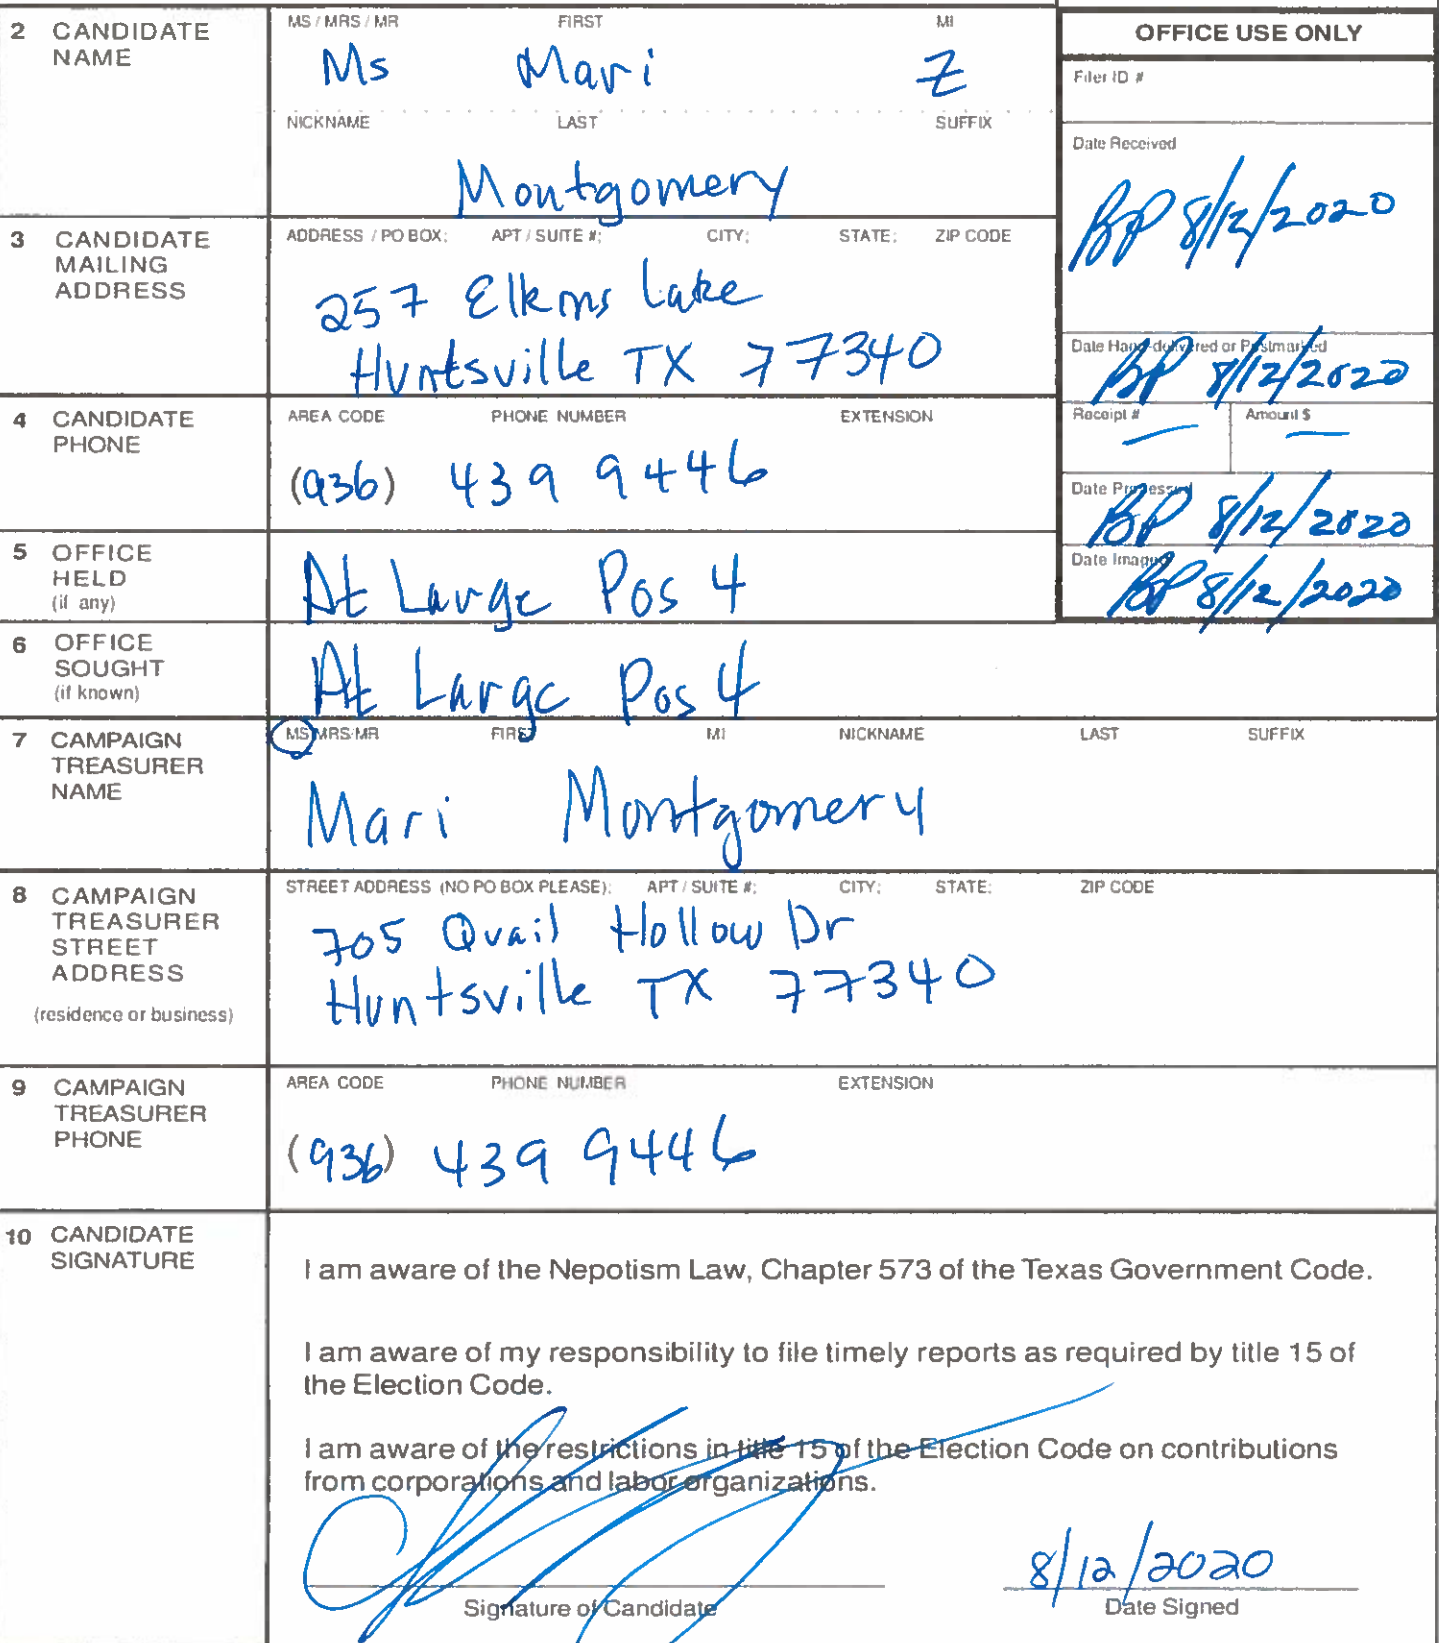 2 CANDIDATE NAME
MS / MRS / MR FIRST MI
Ms Mari Z
NICKNAME LAST SUFFIX
Montgomery
OFFICE USE ONLY
Filer ID #
Date Received
BP 8/12/2020
Date Hand-delivered or Postmarked
BP 8/12/2020
Receipt # Amount $
— —
Date Processed
BP 8/12/2020
Date Imaged
BP 8/12/2020
3 CANDIDATE MAILING ADDRESS
ADDRESS / PO BOX; APT / SUITE #; CITY; STATE; ZIP CODE
257 Elkins Lake
Huntsville TX 77340
4 CANDIDATE PHONE
AREA CODE PHONE NUMBER EXTENSION
(936) 439 9446
5 OFFICE HELD (if any)
At Large Pos 4
6 OFFICE SOUGHT (if known)
At Large Pos 4
7 CAMPAIGN TREASURER NAME
MS/MRS/MR FIRST MI NICKNAME LAST SUFFIX
Mari Montgomery
8 CAMPAIGN TREASURER STREET ADDRESS
(residence or business)
STREET ADDRESS (NO PO BOX PLEASE); APT / SUITE #; CITY; STATE; ZIP CODE
705 Quail Hollow Dr
Huntsville TX 77340
9 CAMPAIGN TREASURER PHONE
AREA CODE PHONE NUMBER EXTENSION
(936) 439 9446
10 CANDIDATE SIGNATURE
I am aware of the Nepotism Law, Chapter 573 of the Texas Government Code.
I am aware of my responsibility to file timely reports as required by title 15 of
the Election Code.
I am aware of the restrictions in title 15 of the Election Code on contributions
from corporations and labor organizations.
8/12/2020
Signature of Candidate Date Signed